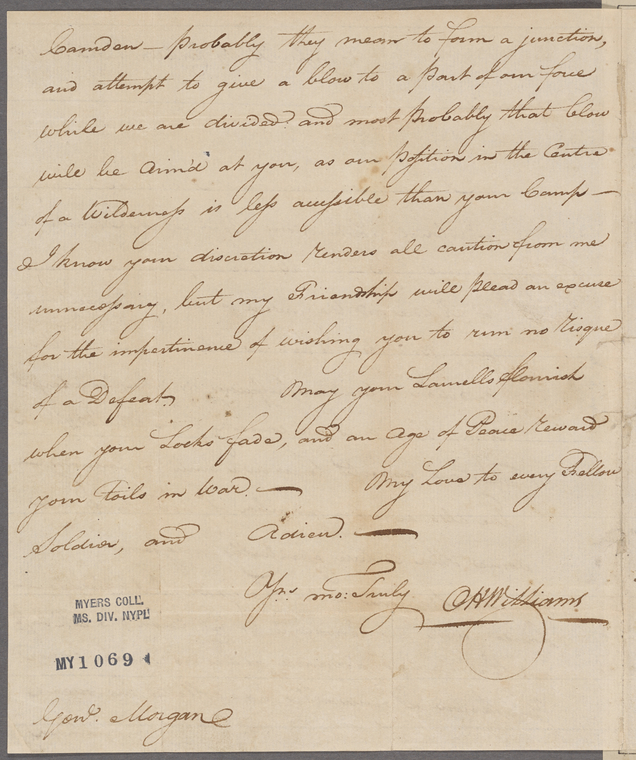 Camden — probably they mean to form a junction,
and attempt to give a blow to a part of our force
while we are divided. and most probably that blow
will be aim'd at you, as our position in the Centre
of a Wilderness is less accessible than your Camp —
I know your discretion renders all caution from me
unnecessary, but my Friendship will plead an excuse
for the impertinence of wishing you to run no risque
of a Defeat. May your Laurells flourish
when your Locks fade, and an age of Peace reward
your toils in War. — My Love to every Fellow
Soldier, and Adieu. —
Yrs. mo: Truly OHWilliams
MYERS COLL.
MS. DIV. NYPL
MY 1069
Genl. Morgan